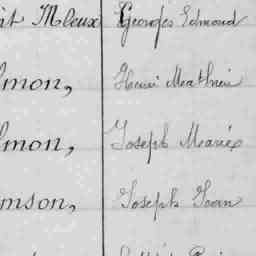 it Mleux Georges Edmond
lmon, Henri Mathieu
lmon, Joseph Marie
mson, Joseph Jean